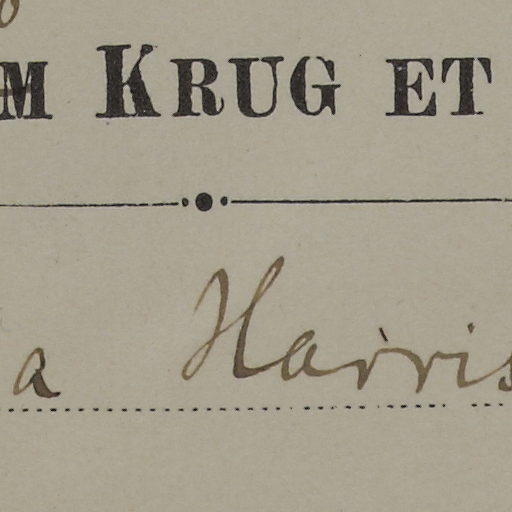 M KRUG ET
a Harris